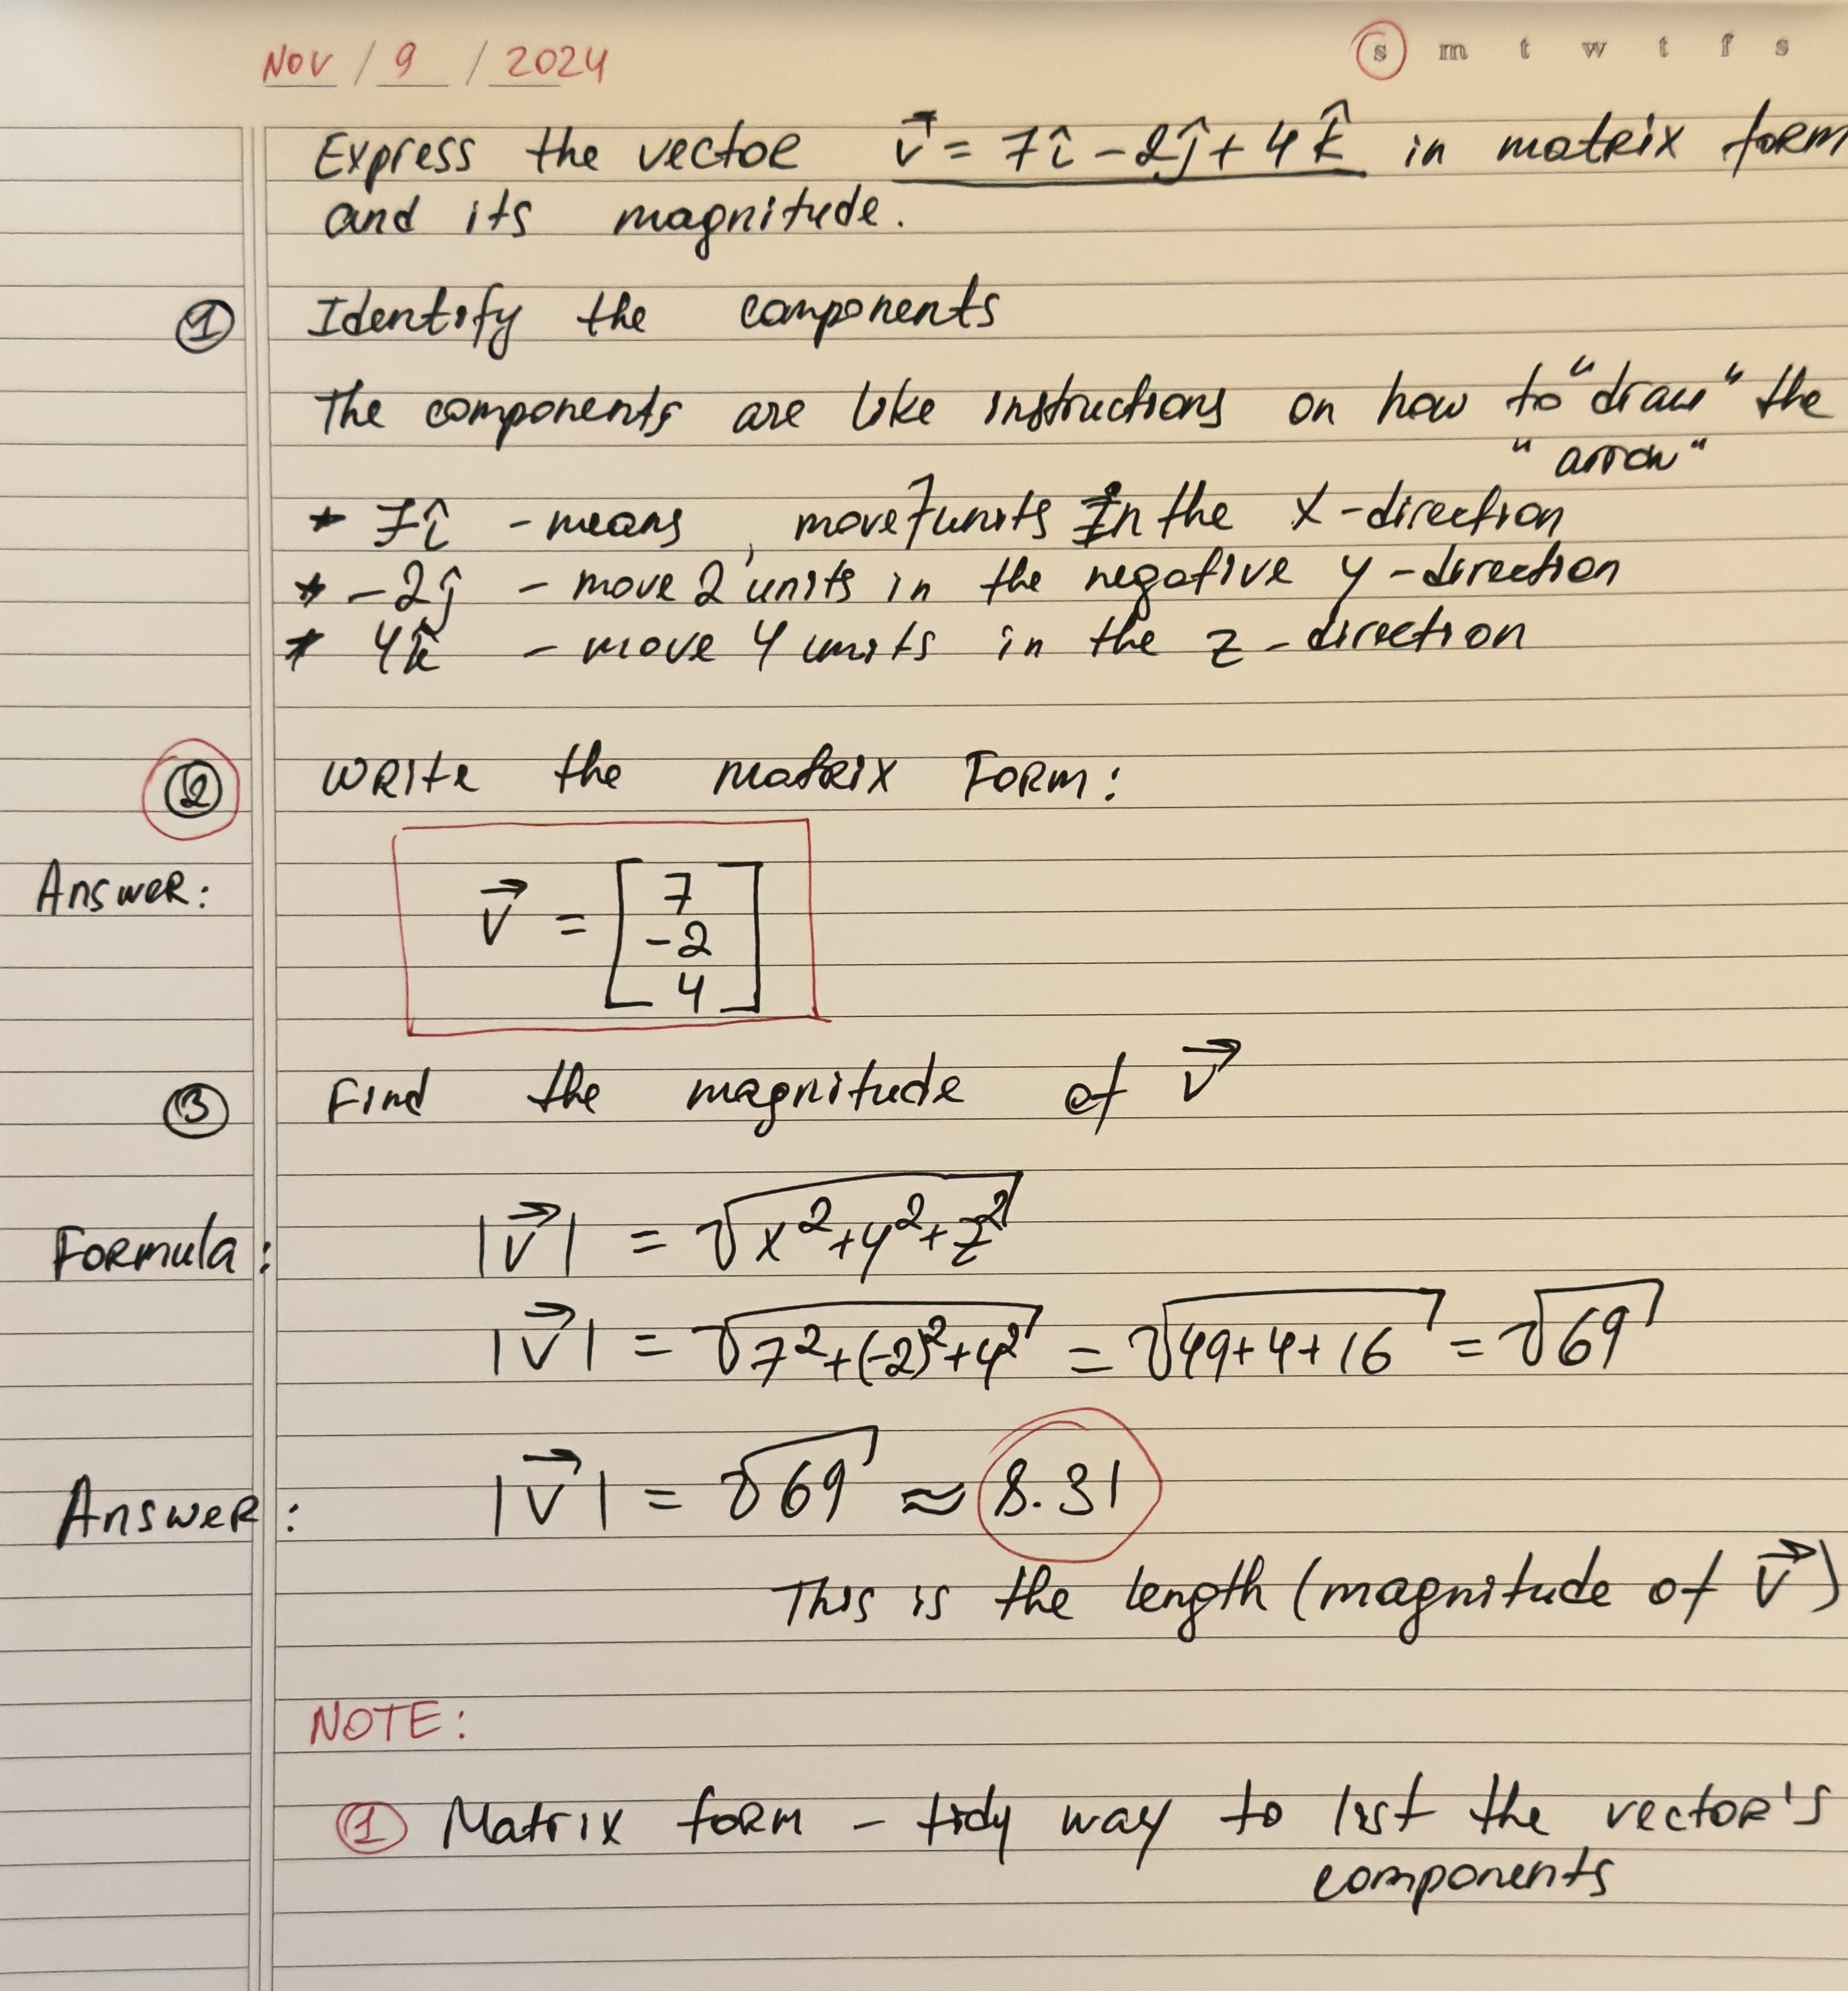 NOV / 9 / 2024 s m t w t f s
Express the vector v⃗ = 7î - 2ĵ + 4k̂ in matrix form
and its magnitude.
① Identify the components
The components are like instructions on how to "draw" the
"arrow"
* 7î - means, move 7 units in the x-direction
* -2ĵ - move 2 units in the negative y-direction
* 4k̂ - move 4 units in the z-direction
② Write the matrix Form:
Answer: v⃗ = [7
-2
4]
③ Find the magnitude of v⃗
Formula: |v⃗| = √(x²+y²+z²)
|v⃗| = √(7²+(-2)²+4²) = √(49+4+16) = √69
Answer: |v⃗| = √69 ≈ 8.31
This is the length (magnitude of v⃗)
NOTE:
① Matrix form - tidy way to list the vector's
components